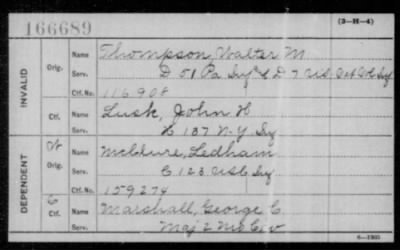 166689
(3-H-4)
Name Thompson, Walter M
INVALID Orig. Serv. D 51 Pa Inf & D 7 US Vet Vol Inf
Ctf. No. 116908
Name Lusk, John H
Ctf. Serv. H 137 N-Y Inf
Name McClure, Ledham
DEPENDENT Orig. Serv. C 123 USC Inf
Ctf. No. 159274
Name Marshall, George C.
Ctf. Serv. Maj 2 Mo Cav
6-1903